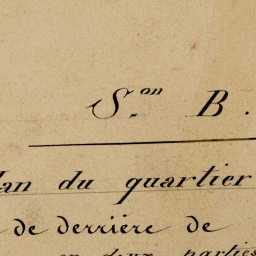 S.on B.
lan du quartier
de derrière de
en deux parties